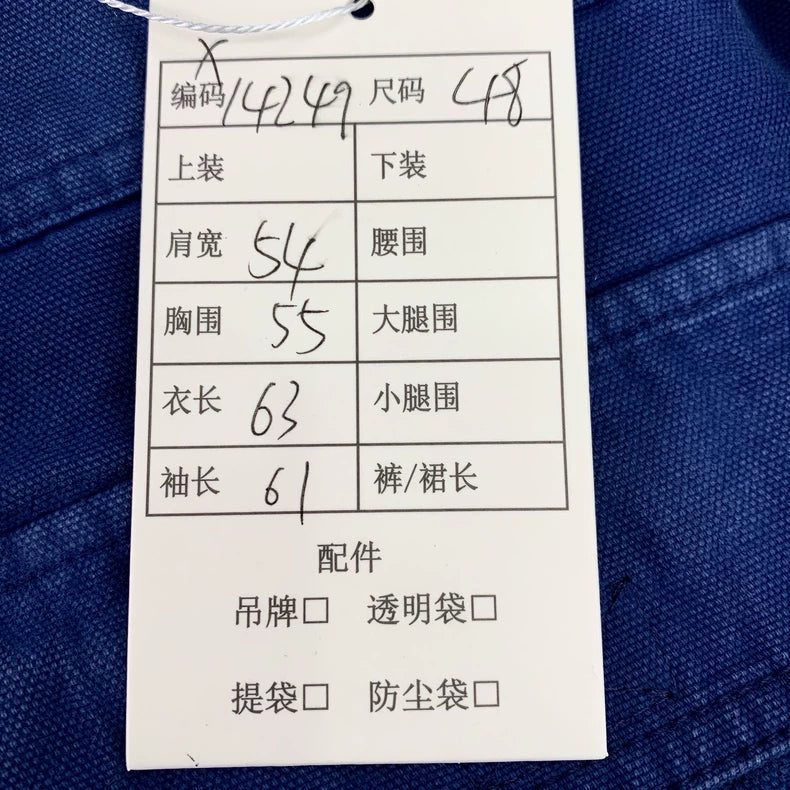 X
编码 14249 尺码 48
上装 下装
肩宽 54 腰围
胸围 55 大腿围
衣长 63 小腿围
袖长 61 裤/裙长
配件
吊牌□ 透明袋□
提袋□ 防尘袋□